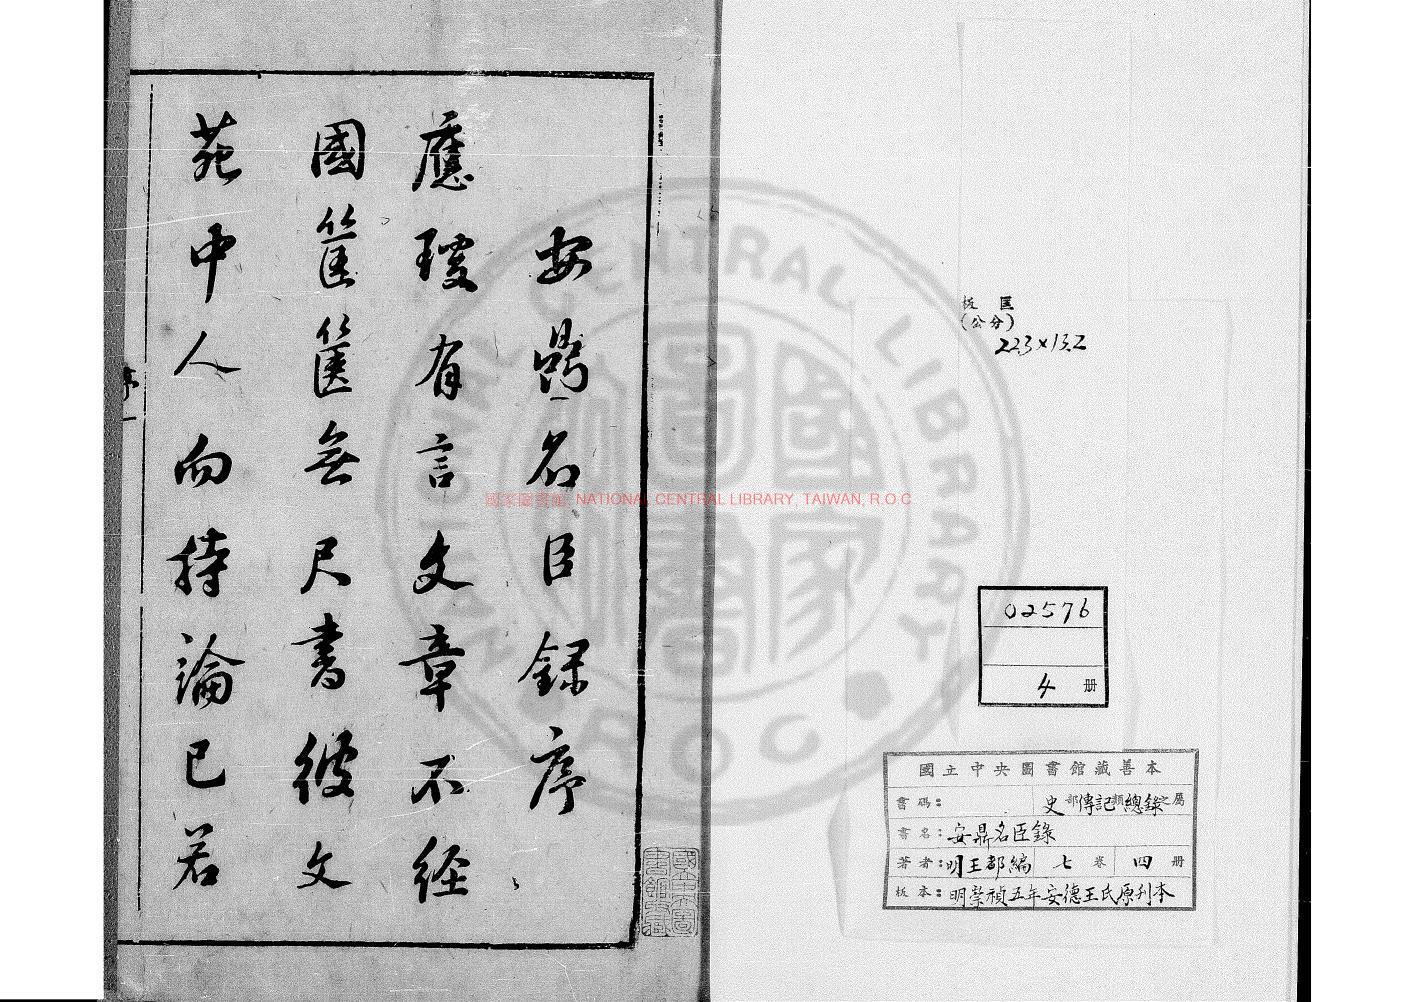 安鼎名臣錄序
應璩有言文章不經
國筐篋無尺書彼文
苑中人而持論已若
序 一
板匡
(公分)
22.3×13.2
02576
4 册
國立中央圖書館藏善本
書碼: 史部傳記類總錄之屬
書名:安鼎名臣錄
著者:明王都編 七 卷 四 册
板本:明崇禎五年安德王氏原刊本
國家圖書館 NATIONAL CENTRAL LIBRARY, TAIWAN, R.O.C
NATIONAL CENTRAL LIBRARY
R O C
國家圖書館